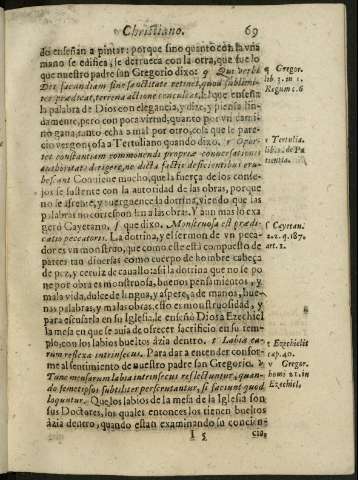 Christiano. 69
do enseñan a pintar: porque sino quanto con la vna
mano se edifica, se derrueca con la otra, que fue lo
que nuestro padre san Gregorio dixo: q Qui verbi
Dei facundiam sine sanctitate retinet, quod sublimiter
prædicat, terrena actione conculcat. El que enseña
la palabra de Dios con elegancia, y dize, y piensa lindamente,
pero con poca virtud, quanto por vn camino
gana, tanto echa a mal por otro, cosa que le parecio
vergonçosa a Tertuliano quando dixo. r Oportet
constantiam commonendi propriæ conuersationis
authoritate dirigere, ne dicta factis deficientibus erubescant
Conuiene mucho, que la fuerça de los consejos
se sustente con la autoridad de las obras, porque
no se afrente, y auerguence la dotrina, viendo que las
palabras no corresponden a las obras. Y aun mas lo exageró
Cayetano, s que dixo. Monstruosa est prædicatio
peccatoris. La dotrina, y el sermon de vn pecador
es vn monstruo, que como este está compuesto de
partes tan diuersas como cuerpo de hombre cabeça
de pez, y ceruiz de cauallo assi la dotrina que no se pone
por obra es monstruosa, buenos pensamientos, y
mala vida, dulce de lengua, y aspero de manos, buenas
palabras, y malas obras, esto es monstruosidad, y
para escusarla en su Iglesia, le enseñó Dios a Ezechiel
la mesa en que se auia de ofrecer sacrificio en su templo,
con los labios bueltos àzia dentro. t Labia earum
reflexa intrinsecus. Para dar a entender conforme
al sentimiento de nuestro padre san Gregorio. v
Tunc mensarum labia intrinsecus reflectuntur, quando
semetipsos subtiliter perscrutantur, si faciunt quod
loquntur. Que los labios de la mesa de la Iglesia son
sus Doctores, los quales entonces los tienen bueltos
àzia dentro, quando estan examinando su concien-
I 5 cia,
q Gregor.
lib. 3. in 1.
Regum c. 6
r Tertulia.
lib. de Patientia.
s Cayetan.
2.2. q. 187.
art. 1.
t Ezechielis
cap. 40.
v Gregor.
homi 21. in
Ezechiel,